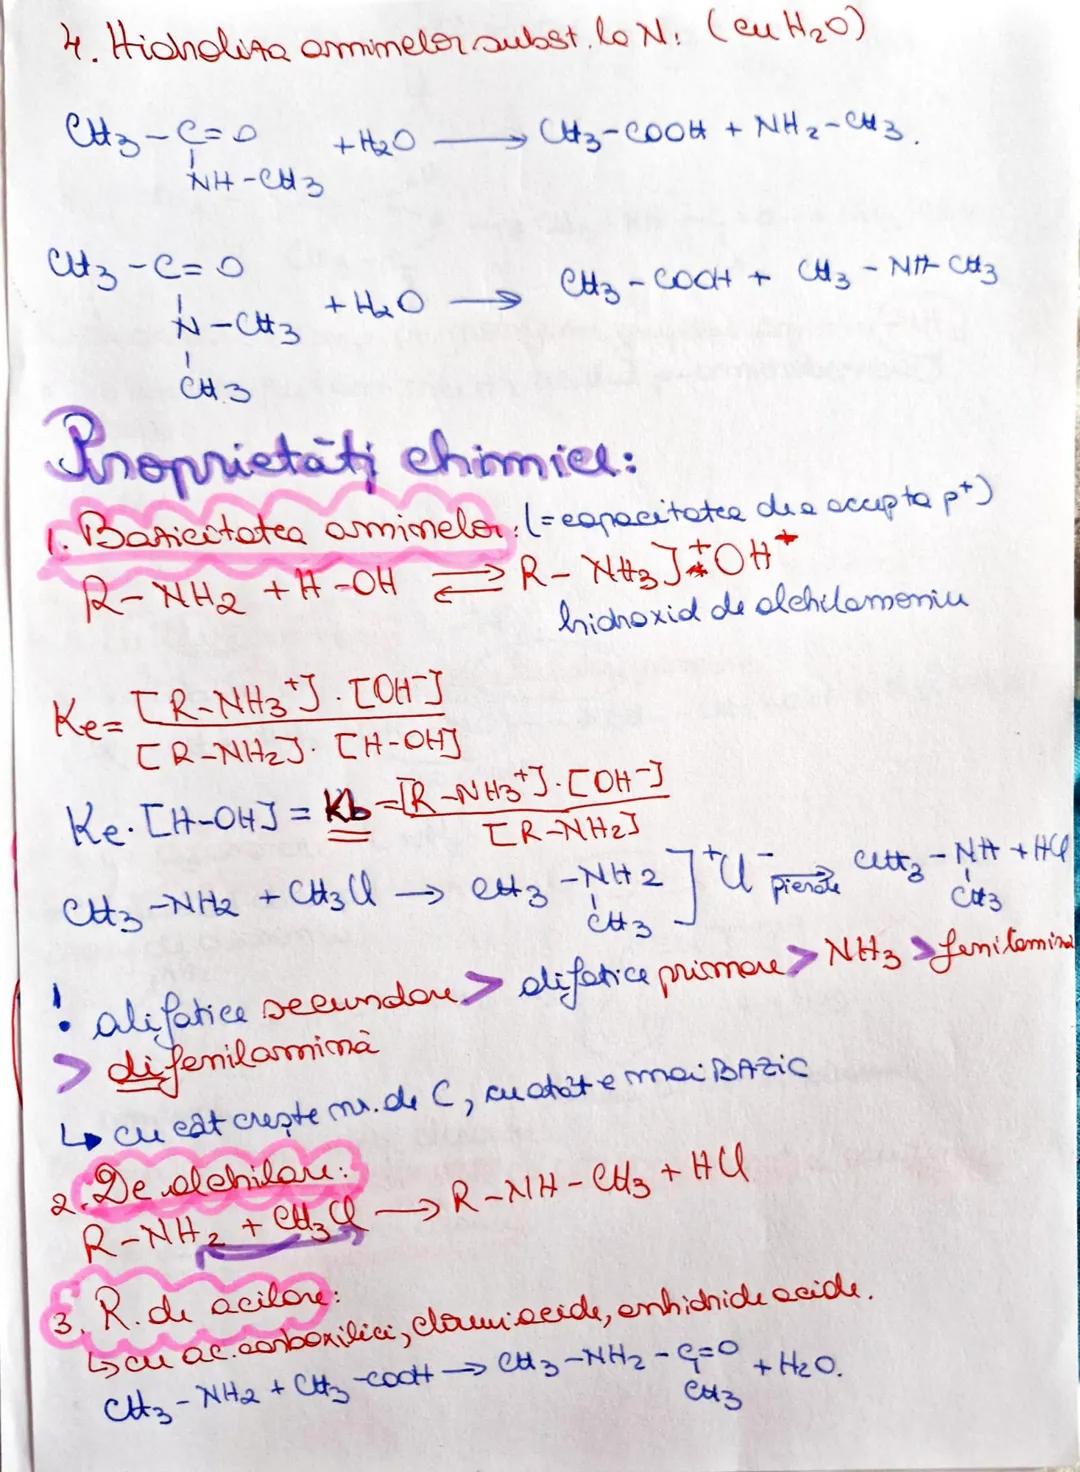 4. Hidroliza aminelor subst. la N: (cu H2O)
CH3-C=O +H2O → CH3-COOH + NH2-CH3.
NH-CH3
CH3-C=O +H2O → CH3-COOH + CH3-NH-CH3
N-CH3
CH3
Proprietăți chimice:
1. Bazicitatea aminelor: (=capacitatea de a accepta p+)
R-NH2 + H-OH ⇌ R-NH3]+ OH+
hidroxid de alchilamoniu
Ke= [R-NH3+]·[OH-]
[R-NH2]·[H-OH]
Ke·[H-OH] = Kb =[R-NH3+]·[OH-]
[R-NH2]
CH3-NH2 + CH3Cl → CH3-NH2]+Cl- pierde CH3-NH+HCl
CH3 CH3
! alifatice secundare > alifatice primare > NH3 > fenilamina
> difenilamină
↳ cu cât crește nr. de C, cu atât e mai BAZIC
2. De alchilare:
R-NH2 + CH3Cl → R-NH-CH3 + HCl
3. R. de acilare:
↳ cu ac. carboxilici, cloruri acide, anhidride acide.
CH3-NH2 + CH3-COOH → CH3-NH2-C=O + H2O.
CH3